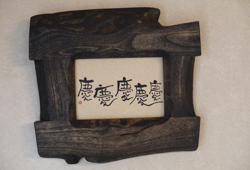 慶慶慶慶慶